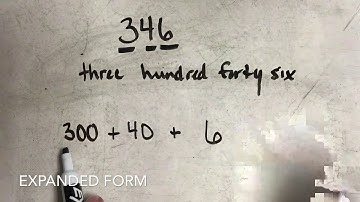 346
three hundred forty six
300 + 40 + 6
EXPANDED FORM